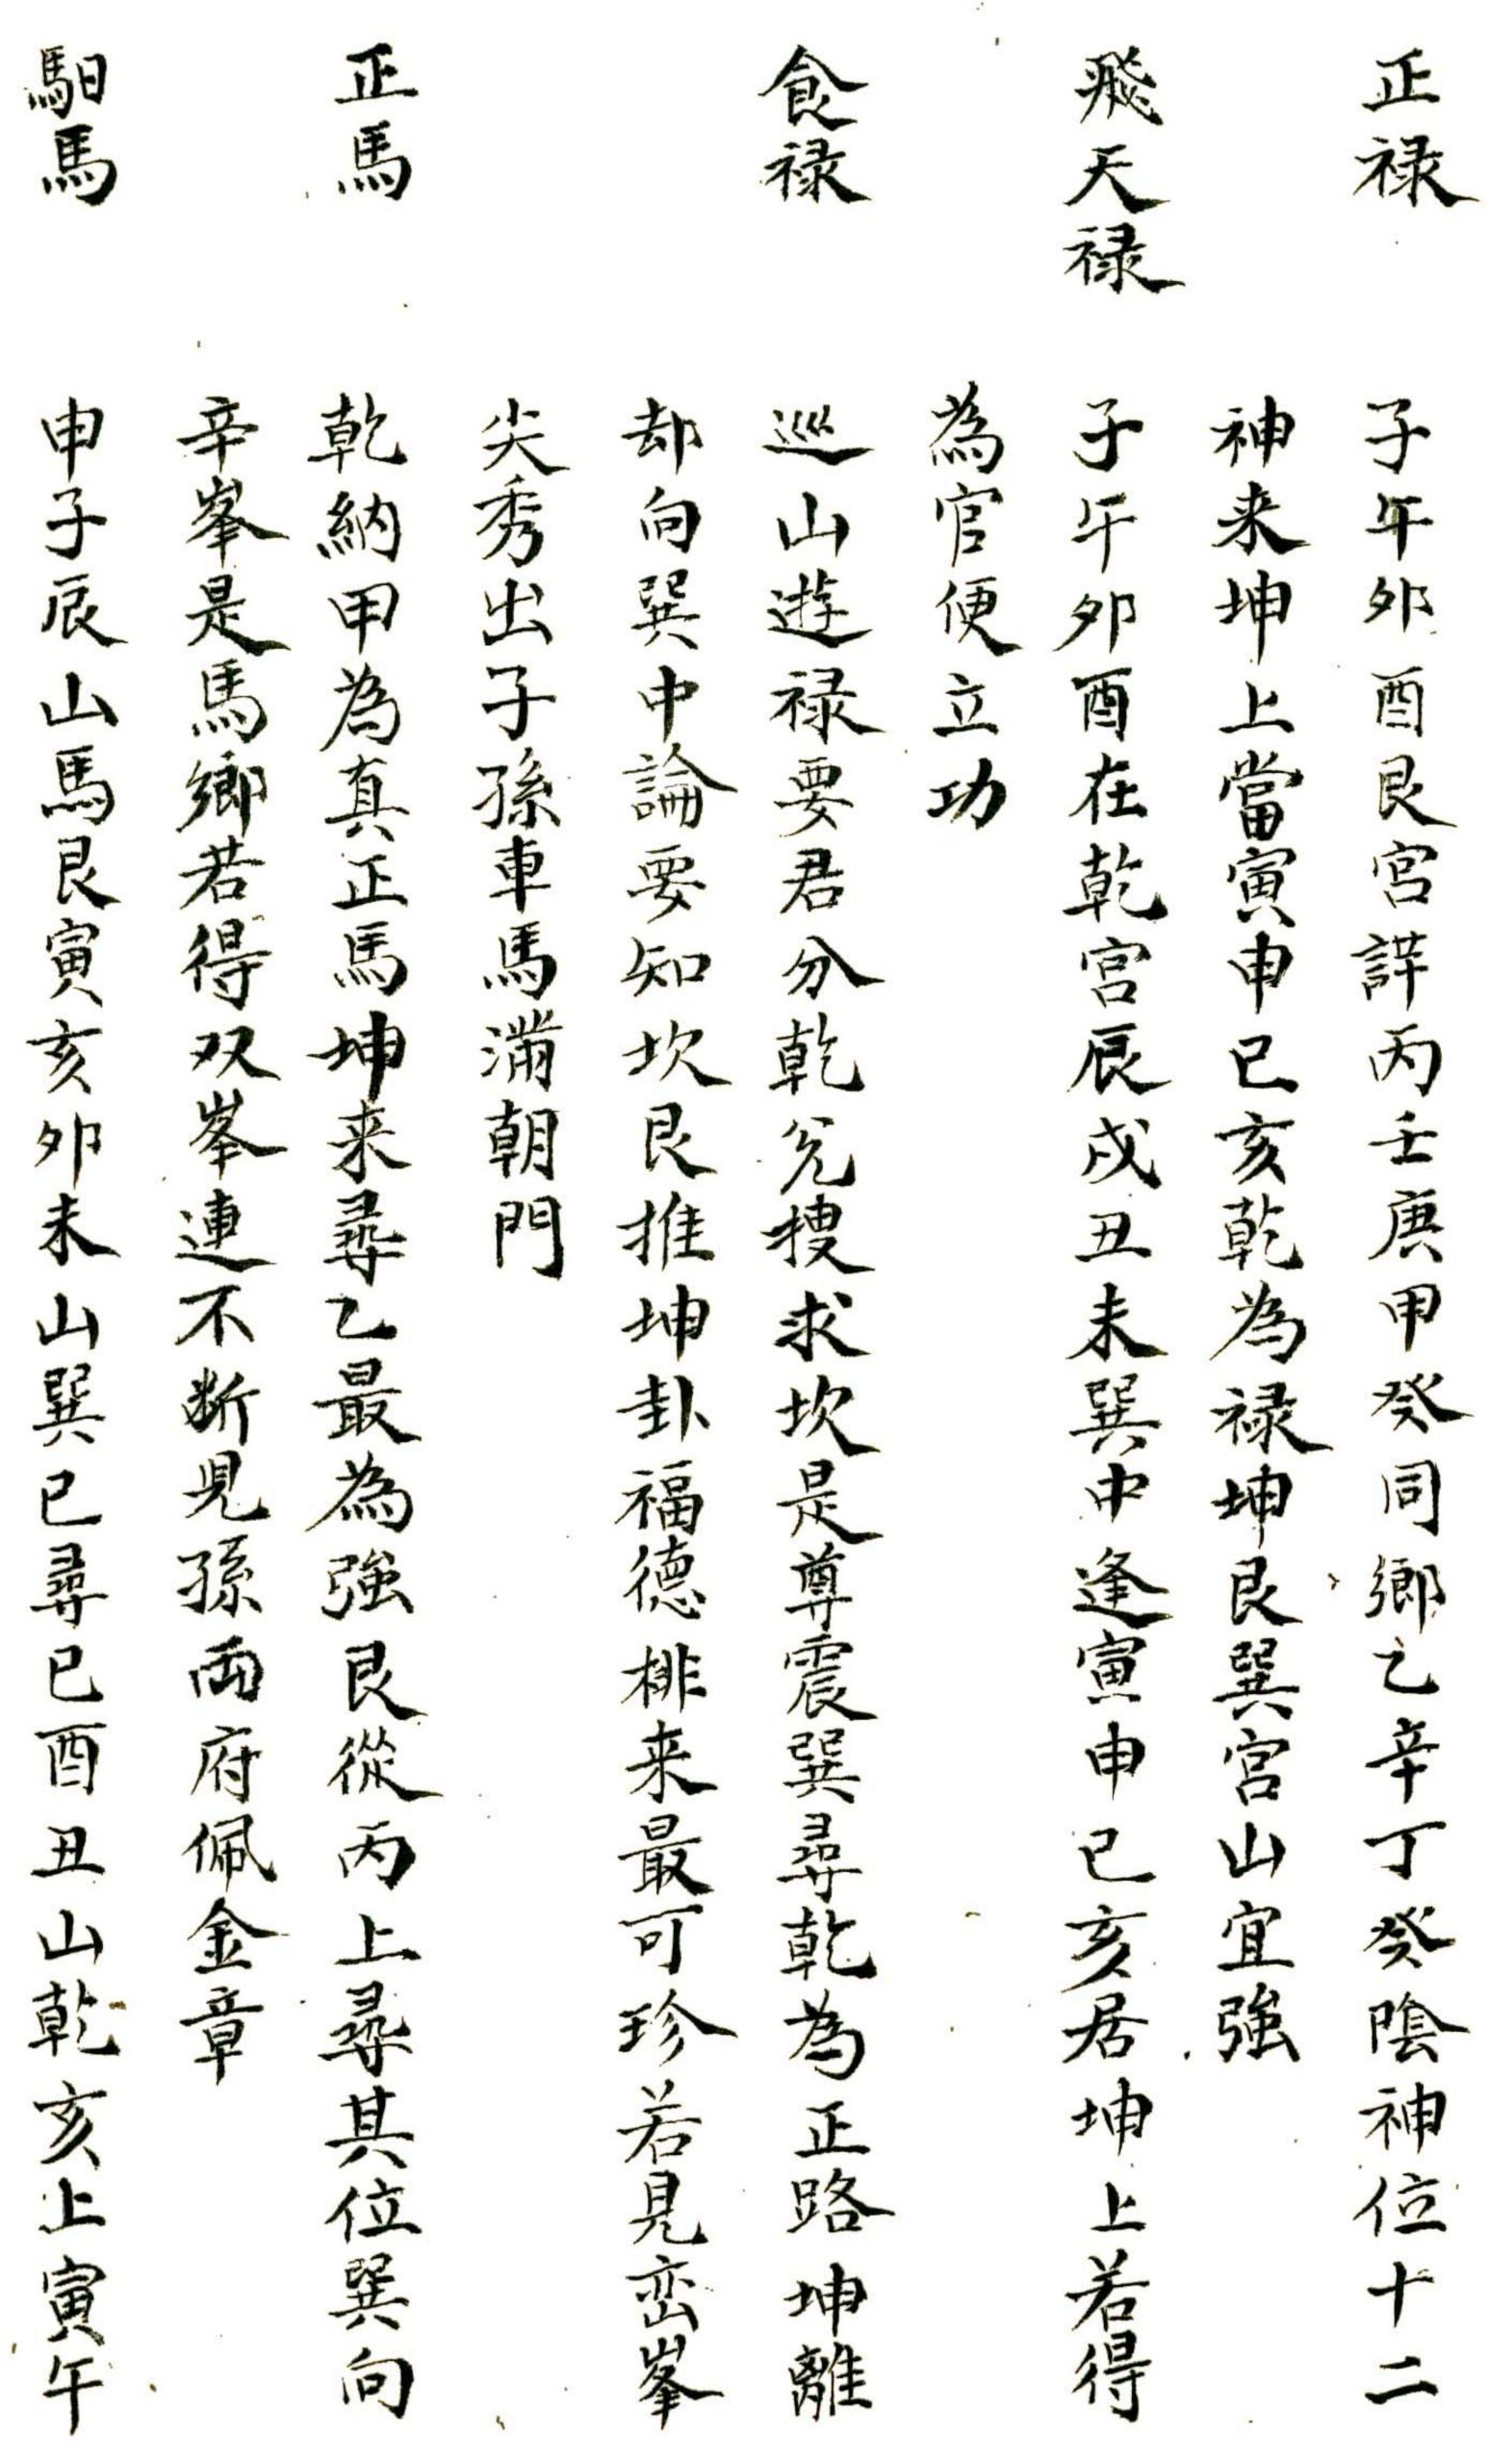 正禄 子午卯酉艮宮詳丙壬庚甲癸同鄉乙辛丁癸陰神位十二
神来坤上當寅申巳亥乾為禄坤艮巽宮山宜強
飛天禄 子午卯酉在乾宮辰戌丑未巽中逢寅申巳亥居坤上若得
為官便立功
食禄 巡山遊禄要君分乾兌搜求坎是尊震巽尋乾為正路坤離
却向巽中論要知坎艮推坤卦福德排来最可珍若見巒峯
尖秀出子孫車馬滿朝門
正馬 乾納甲為真正馬坤来尋乙最為強艮從丙上尋其位巽向
辛峯是馬鄉若得双峯連不断児孫兩府佩金章
馹馬 申子辰山馬艮寅亥卯未山巽巳尋巳酉丑山乾亥上寅午